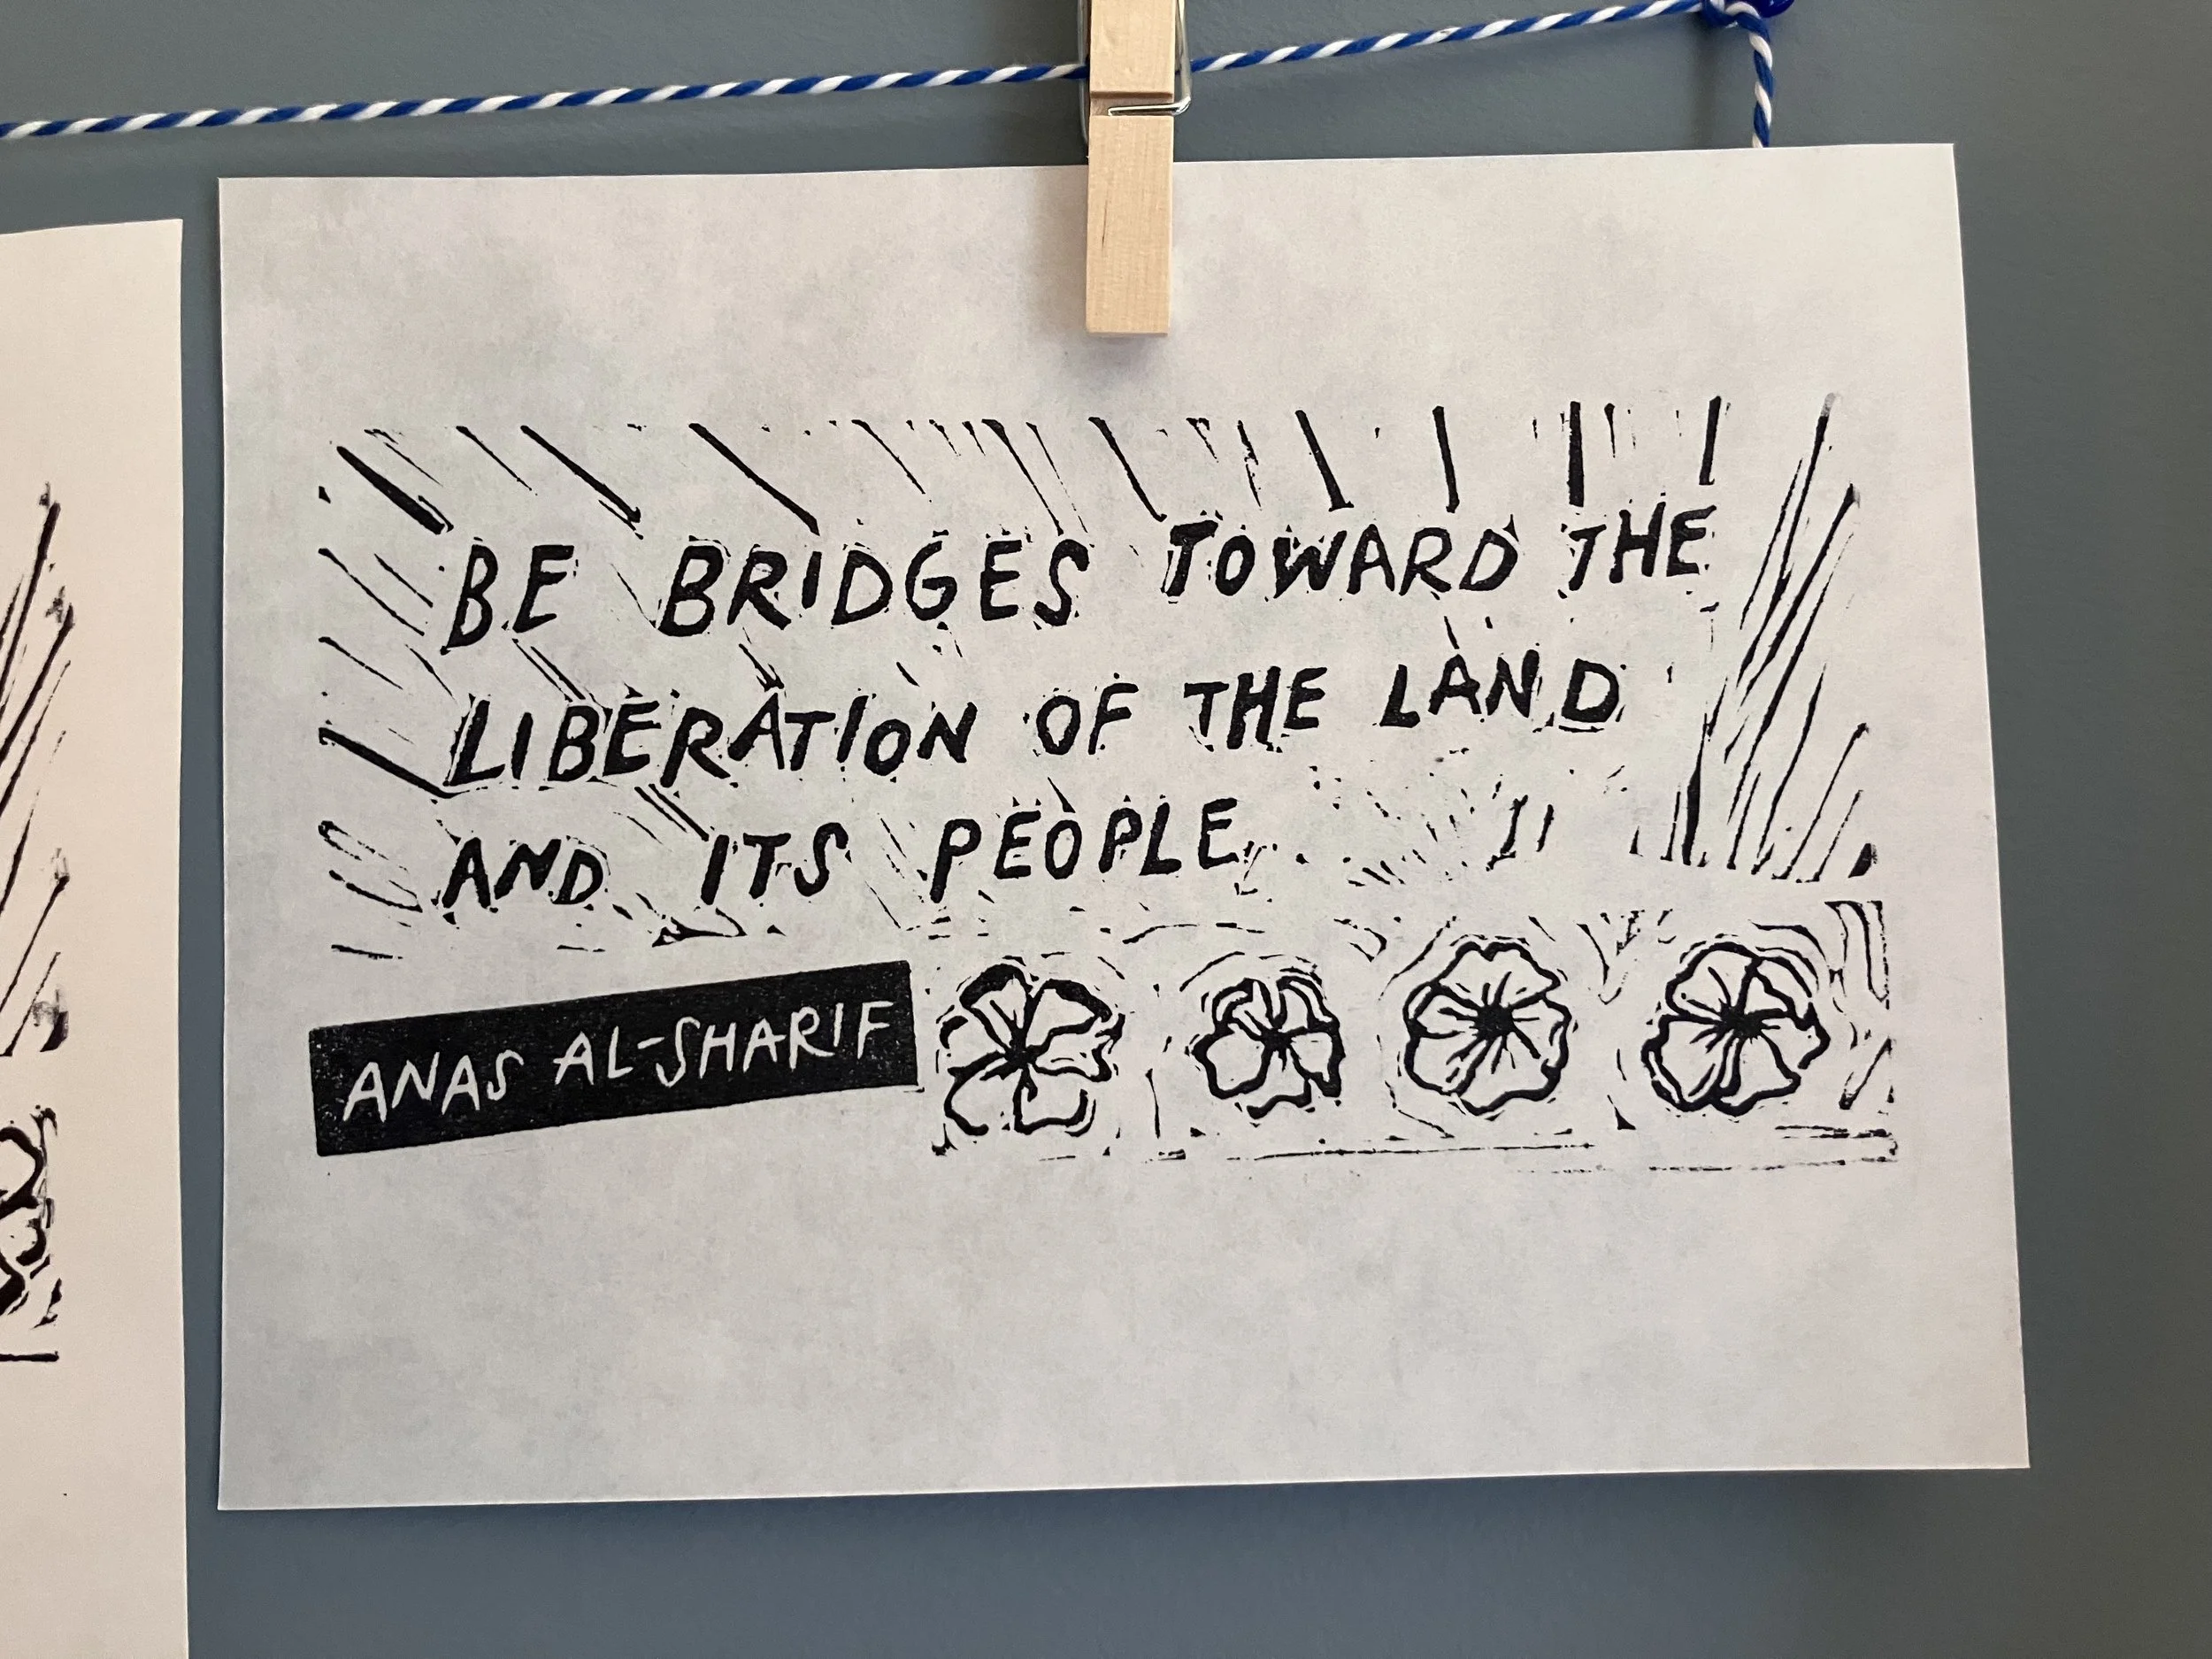 BE BRIDGES TOWARD THE
LIBERATION OF THE LAND
AND ITS PEOPLE.
ANAS AL-SHARIF